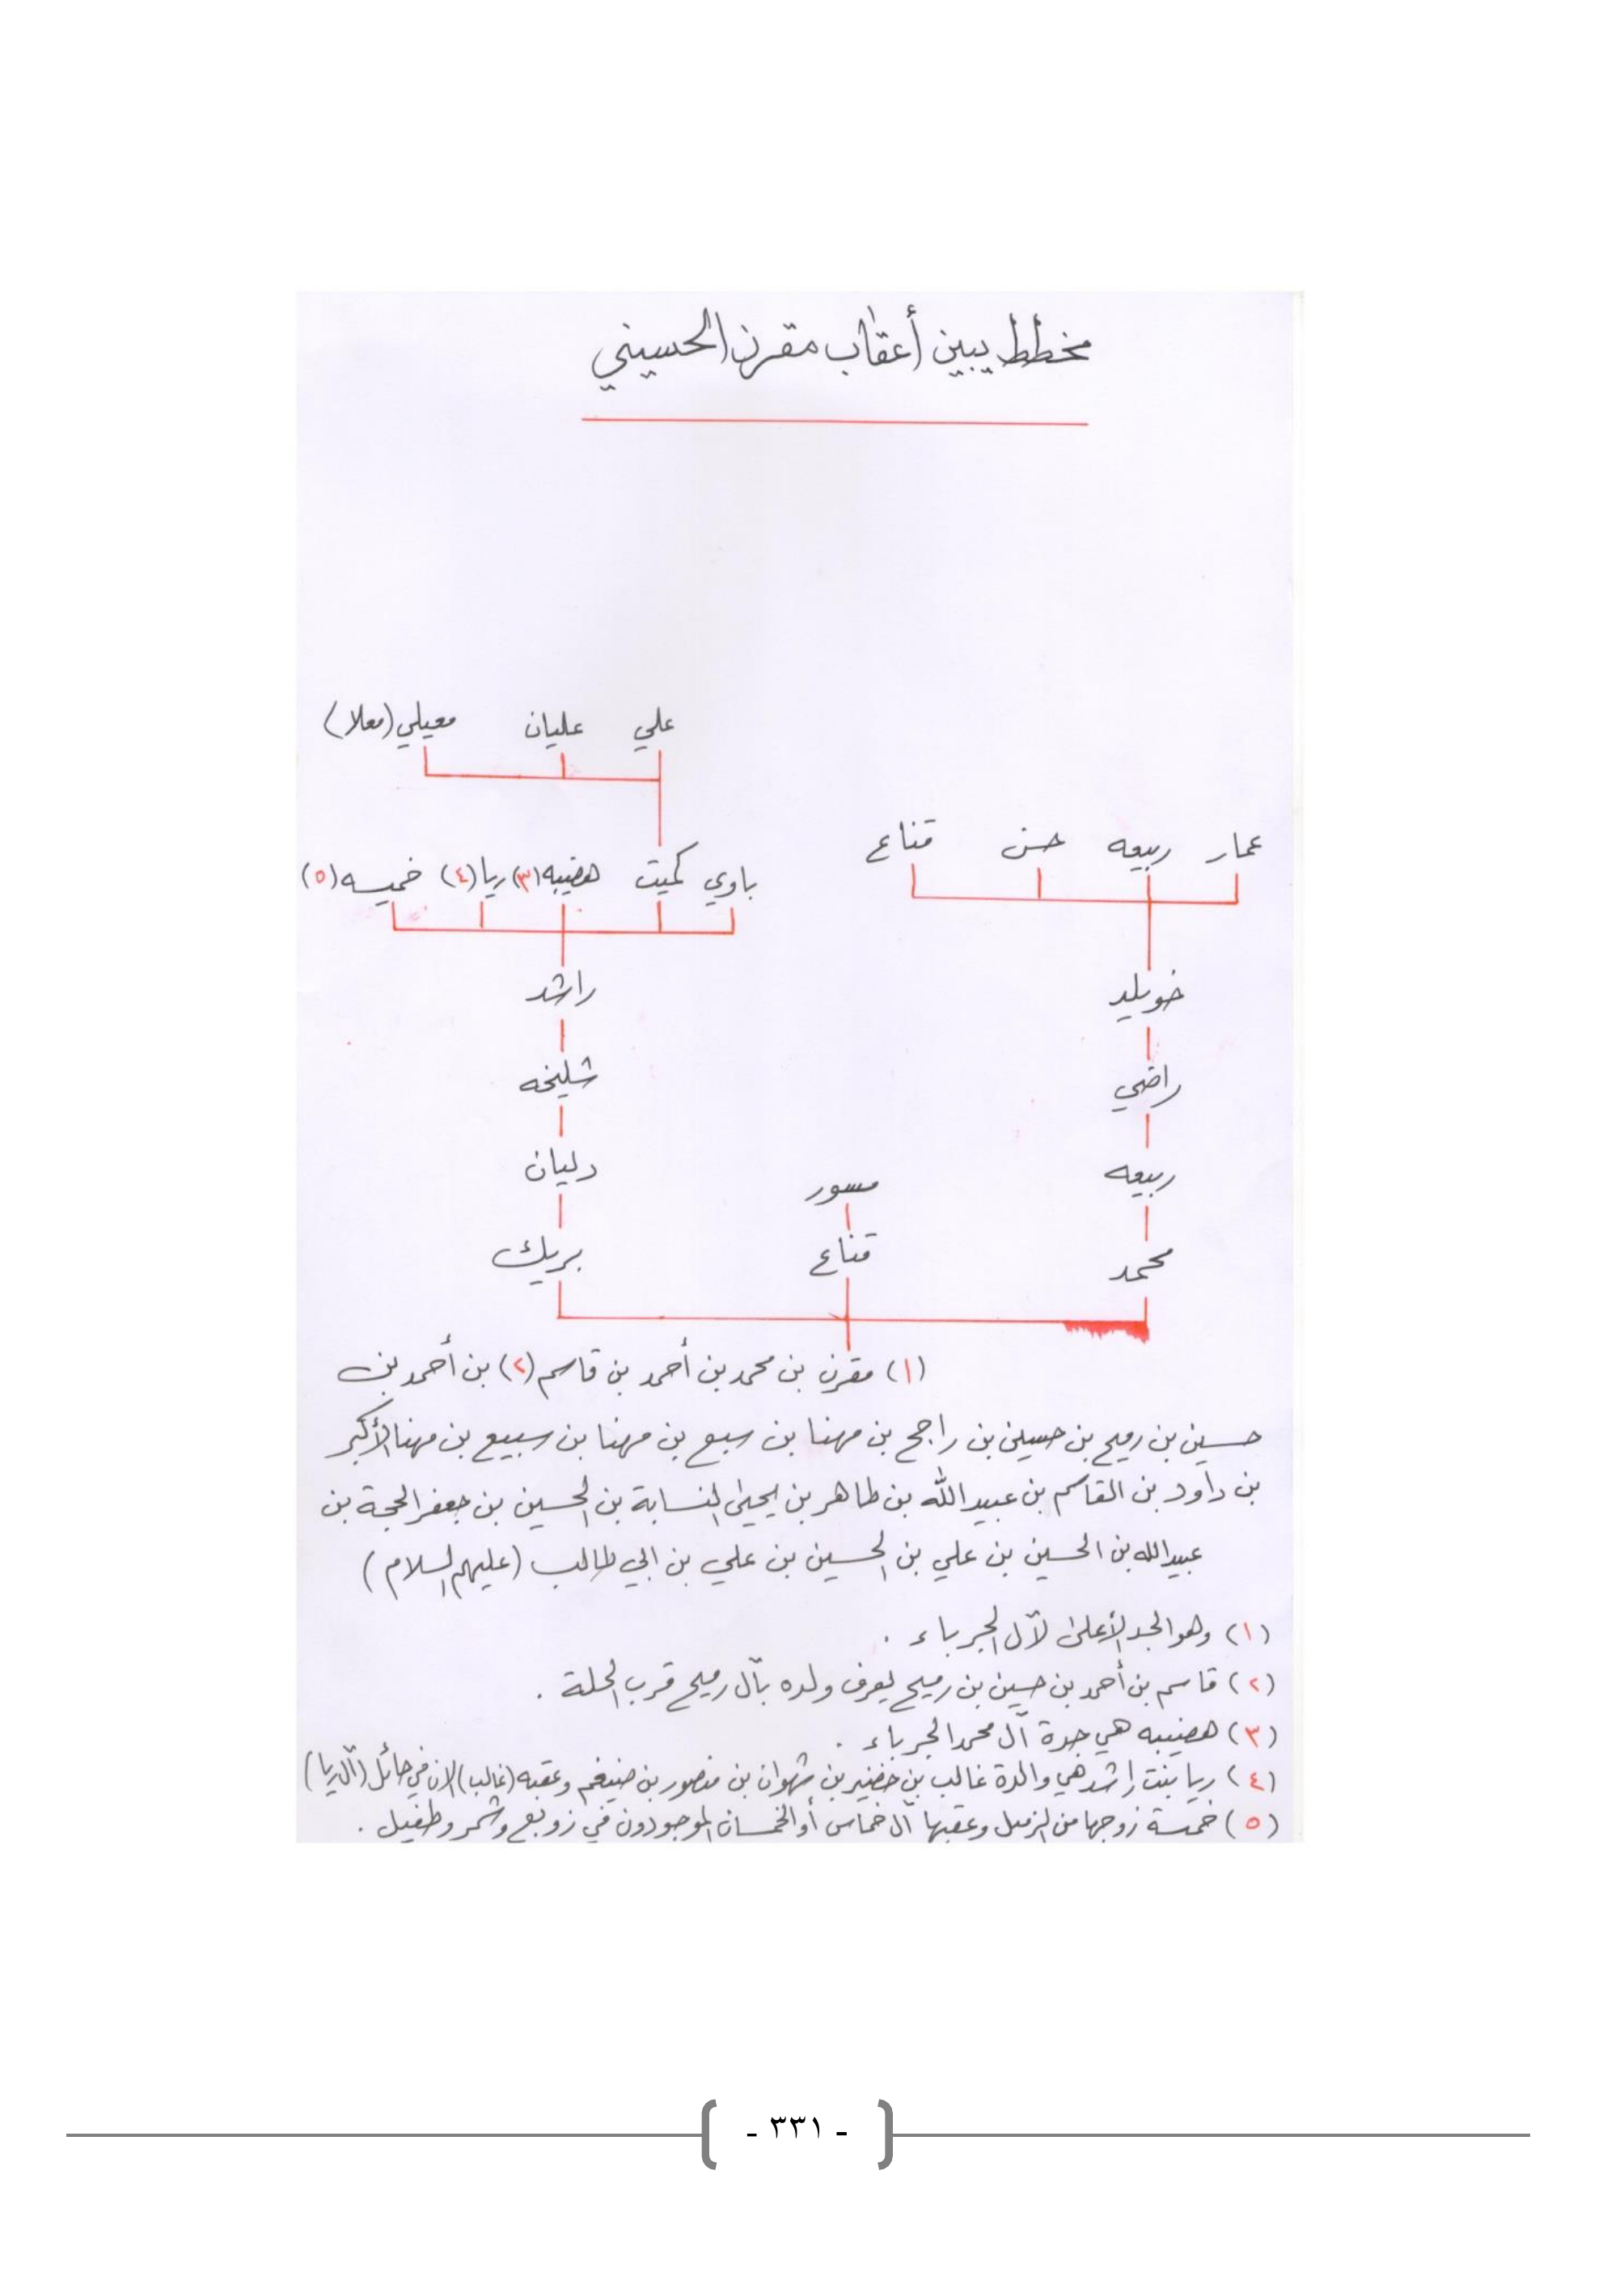 مخطط يبين أعقاب مقرن الحسيني
علي عليان معيلي (معلا)
عمار ربيعه حسن قناع
باوي كميت هضيبه (٣) ريا (٤) خميسه (٥)
خويلد راشد
راضي شليخه
ربيعه دليان
مسور
محمد قناع بريك
(١) مقرن بن محمد بن أحمد بن قاسم (٢) بن أحمد بن
حسين بن رميح بن حسين بن راجح بن مهنا بن سبع بن مهنا بن سبيع بن مهنا الأكبر
بن داود بن القاسم بن عبيد الله بن طاهر بن يحيى النسابة بن الحسين بن جعفر الحجة بن
عبيد الله بن الحسين بن علي بن الحسين بن علي بن ابي طالب (عليهم السلام)
(١) وهو الجد الأعلى لآل الجرباء .
(٢) قاسم بن أحمد بن حسين بن رميح يعرف ولده بآل رميح قرب الحلة .
(٣) هضيبه هي جدة آل محمد الجرباء .
(٤) ريا بنت راشد هي والدة غالب بن خضير بن شهوان بن منصور بن ضيغم وعقبه (غالب) الان في حائل (آل ريا)
(٥) خمسة زوجها من الزميل وعقبها آل خماس أو الخمسان الموجودون في زوبع وشمر وطفيل .
- ٣٣١ -